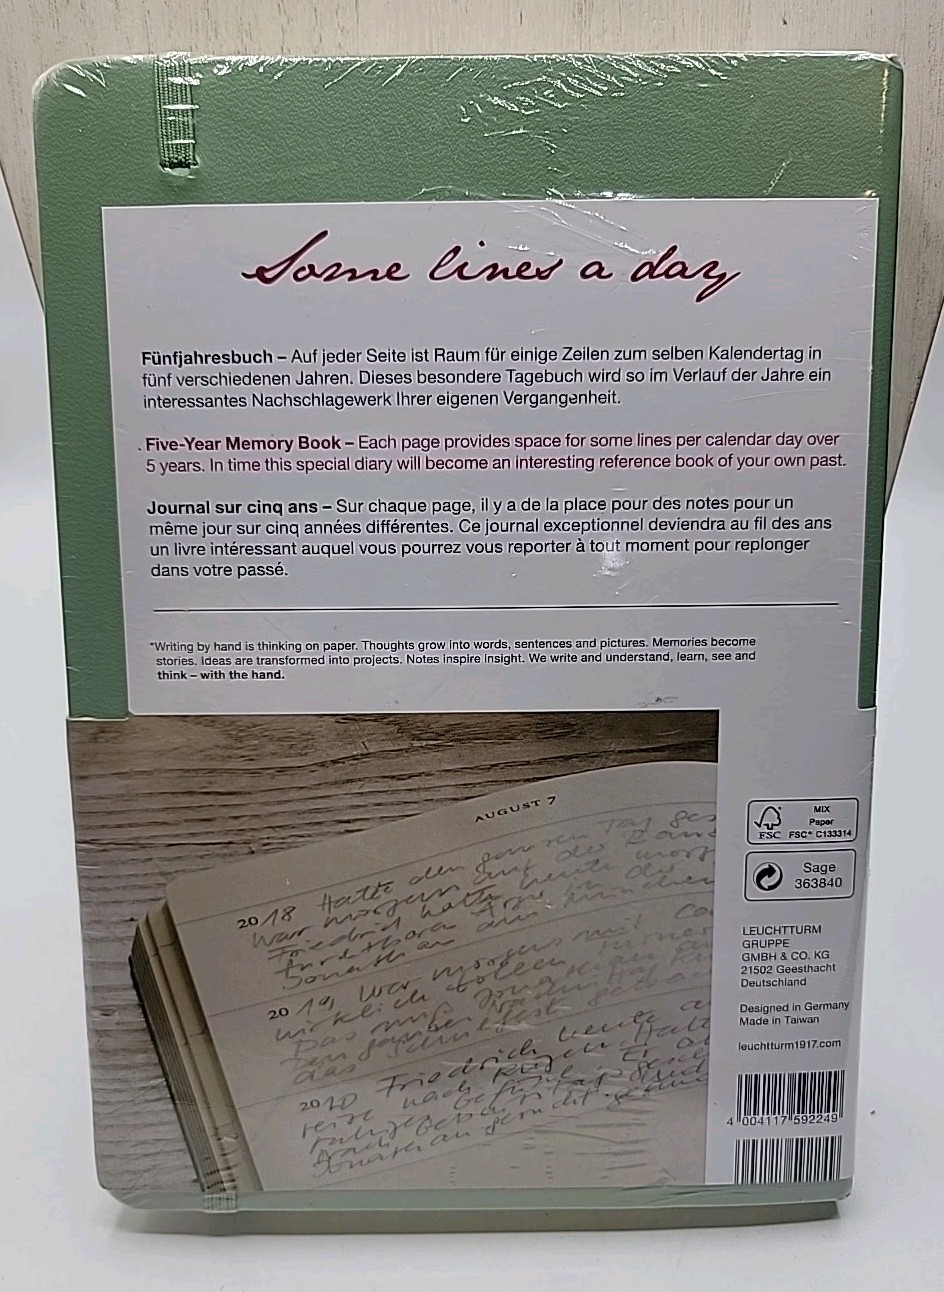 Some lines a day
Fünfjahresbuch – Auf jeder Seite ist Raum für einige Zeilen zum selben Kalendertag in
fünf verschiedenen Jahren. Dieses besondere Tagebuch wird so im Verlauf der Jahre ein
interessantes Nachschlagewerk Ihrer eigenen Vergangenheit.
Five-Year Memory Book – Each page provides space for some lines per calendar day over
5 years. In time this special diary will become an interesting reference book of your own past.
Journal sur cinq ans – Sur chaque page, il y a de la place pour des notes pour un
même jour sur cinq années différentes. Ce journal exceptionnel deviendra au fil des ans
un livre intéressant auquel vous pourrez vous reporter à tout moment pour replonger
dans votre passé.
"Writing by hand is thinking on paper. Thoughts grow into words, sentences and pictures. Memories become
stories. Ideas are transformed into projects. Notes inspire insight. We write and understand, learn, see and
think – with the hand.
AUGUST 7
2018 Hatte den ganzen Tag
war morgen auf der
Friedrich hatte heute
2019 War morgens mit
wirklich
2020 Friedrich heute
nach
MIX
Paper
FSC FSC® C133314
Sage
363840
LEUCHTTURM
GRUPPE
GMBH & CO. KG
21502 Geesthacht
Deutschland
Designed in Germany
Made in Taiwan
leuchtturm1917.com
4 004117 592249